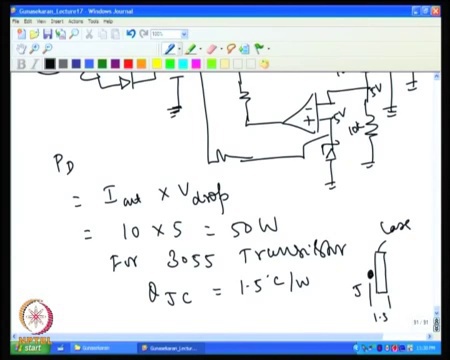 Gunasekaran_Lecture17 - Windows Journal
File Edit View Insert Actions Tools Help
100%
B I
5V
5V
10k
PD
= Iout × Vdrop
= 10 × 5 = 50W
For 3055 Transistor
θJC = 1.5°C/W
Case
J
1.5
start
Gunasekaran
Gunasekaran_Lectur...